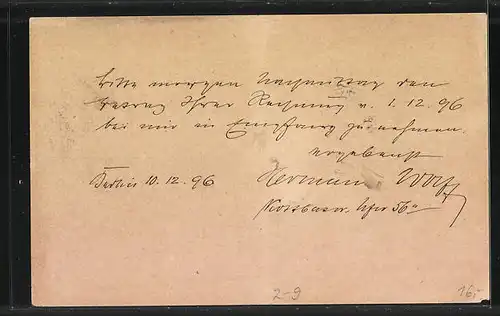 Bitte morgen Nachmittag den
Betrag Ihrer Rechnung v. 1.12.96
bei mir in Empfang zu nehmen.
ergebenst
Berlin 10.12.96 Hermann Wolff
Kottbuser Ufer 56a
2-9 16,-